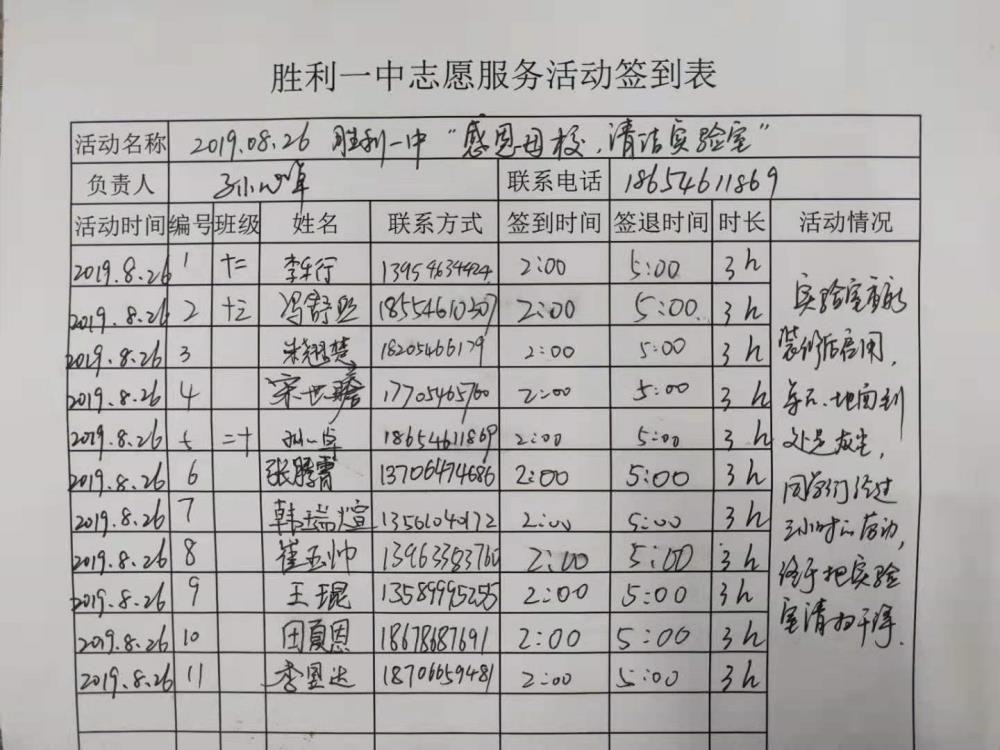 胜利一中志愿服务活动签到表
活动名称 2019.08.26 胜利一中“感恩母校，清洁实验室”
负责人 联系电话 18654611869
活动时间 编号 班级 姓名 联系方式 签到时间 签退时间 时长 活动情况
2019.8.26 1 十二 李乐行 13954634424 2:00 5:00 3h
2019.8.26 2 十三 冯舒熙 18554610307 2:00 5:00 3h
2019.8.26 3 2:00 5:00 3h
2019.8.26 4 宋世 2:00 5:00 3h
2019.8.26 5 二十 18654611869 2:00 5:00 3h
2019.8.26 6 张腾霄 13706474686 2:00 5:00 3h
2019.8.26 7 韩瑞煊 13561040172 2:00 5:00 3h
2019.8.26 8 崔玉帅 2:00 5:00 3h
2019.8.26 9 王琨 13589995255 2:00 5:00 3h
2019.8.26 10 田夏恩 18678687691 2:00 5:00 3h
2019.8.26 11 18706659481 2:00 5:00 3h
实验室重新
装修后启用，
地面到
处是灰尘，
同学们经过
三小时的劳动，
终于把实验
室清扫干净.